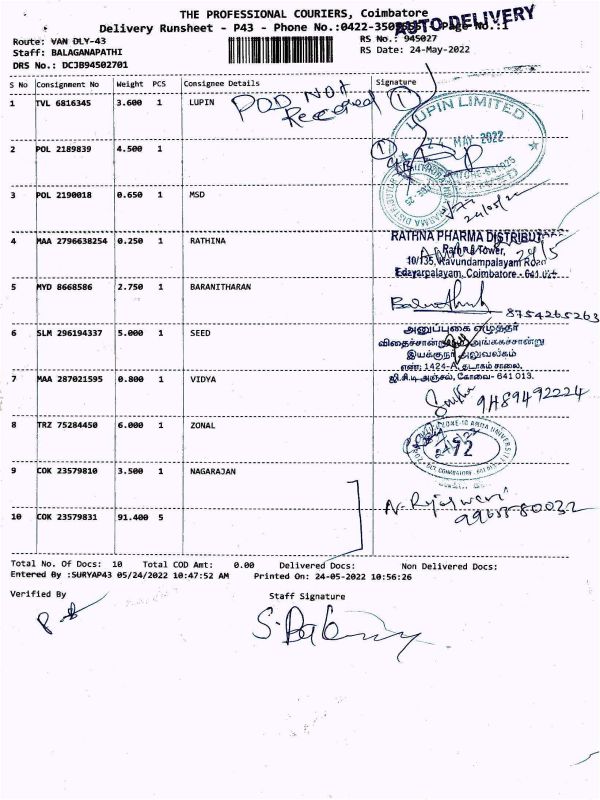 THE PROFESSIONAL COURIERS, Coimbatore
AUTO DELIVERY
Delivery Runsheet - P43 - Phone No.:0422-350 Page No.:1
Route: VAN DLY-43
RS No.: 945027
Staff: BALAGANAPATHI
RS Date: 24-May-2022
DRS No.: DCJB94502701
S No Consignment No Weight PCS Consignee Details Signature
1 TVL 6816345 3.600 1 LUPIN
POD NOT
Received ①
LUPIN LIMITED
24 MAY 2022
2 POL 2189839 4.500 1
①
3 POL 2190018 0.650 1 MSD
24/05/22
4 MAA 2796638254 0.250 1 RATHINA
RATHNA PHARMA DISTRIBUT
Rathna Tower,
10/135, Ravundampalayam Road
Edayarpalayam, Coimbatore - 641
24/5
5 MYD 8668586 2.750 1 BARANITHARAN
8754265263
6 SLM 296194337 5.000 1 SEED
அனுப்புகை எழுத்தர்
விதைச்சான்று அங்ககச்சான்று
இயக்குநர் அலுவலகம்
எண்: 1424-A, தடாகம் சாலை,
ஜி.சி.டி அஞ்சல், கோவை- 641 013.
7 MAA 287021595 0.800 1 VIDYA
9489492224
8 TRZ 75284450 6.000 1 ZONAL
9 COK 23579810 3.500 1 NAGARAJAN
N. Rajeswari
9965580032
10 COK 23579831 91.400 5
Total No. Of Docs: 10 Total COD Amt: 0.00 Delivered Docs: Non Delivered Docs:
Entered By :SURYAP43 05/24/2022 10:47:52 AM Printed On: 24-05-2022 10:56:26
Verified By
Staff Signature